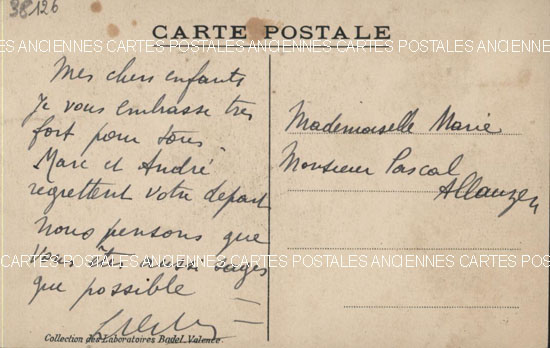 38126
CARTE POSTALE
CARTES POSTALES ANCIENNES CARTES POSTALES ANCIENNES CARTES POSTALES
Mes chers enfants
Je vous embrasse très
fort pour tous
Marc et André
regrettent votre depart
Nous pensons que
vous êtes aussi sages
que possible
Mademoiselle Marie
Monsieur Pascal
CARTES POSTALES ANCIENNES CARTES POSTALES ANCIENNES CARTES POSTALES
Collection des Laboratoires Badel_Valence.